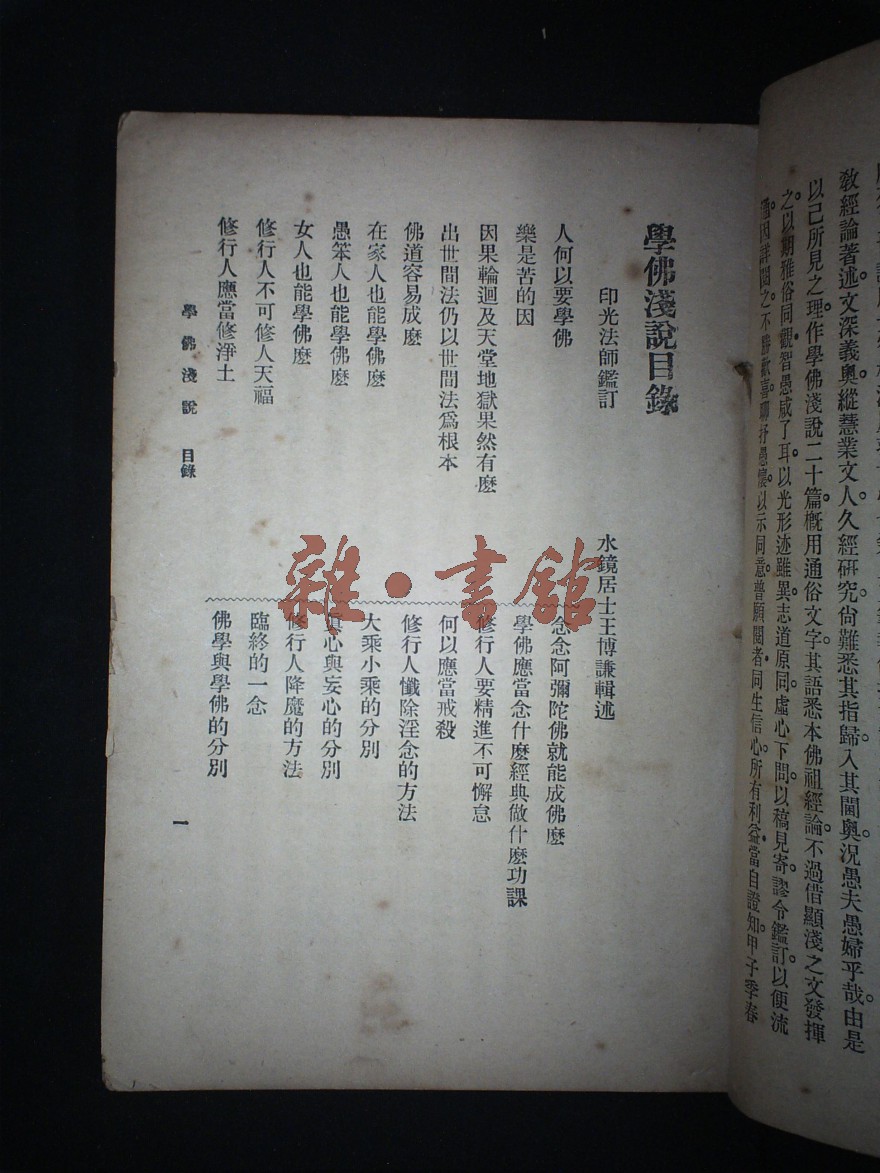 教經論著述。文深義奧。縱慧業文人。久經研究。尙難悉其指歸。入其閫奧。況愚夫愚婦乎哉。由是
以己所見之理。作學佛淺說二十篇。槪用通俗文字。其語悉本佛祖經論。不過借顯淺之文。發揮
之。以期雅俗同觀。智愚咸了耳。以光形迹雖異。志道原同。虛心下問。以稿見寄。謬令鑑訂。以便流
通。因詳閱之。不勝歡喜。聊抒愚懷。以示同意。普願閱者。同生信心。所有利益。當自證知。甲子季春
學佛淺說目錄
印光法師鑑訂
水鏡居士王博謙輯述
人何以要學佛
樂是苦的因
因果輪迴及天堂地獄果然有麽
出世間法仍以世間法爲根本
佛道容易成麽
在家人也能學佛麽
愚笨人也能學佛麽
女人也能學佛麽
修行人不可修人天福
修行人應當修淨土
念念阿彌陀佛就能成佛麽
學佛應當念什麽經典做什麽功課
修行人要精進不可懈怠
何以應當戒殺
修行人懺除淫念的方法
大乘小乘的分別
眞心與妄心的分別
修行人降魔的方法
臨終的一念
佛學與學佛的分別
學佛淺說 目錄
一
雜·書館